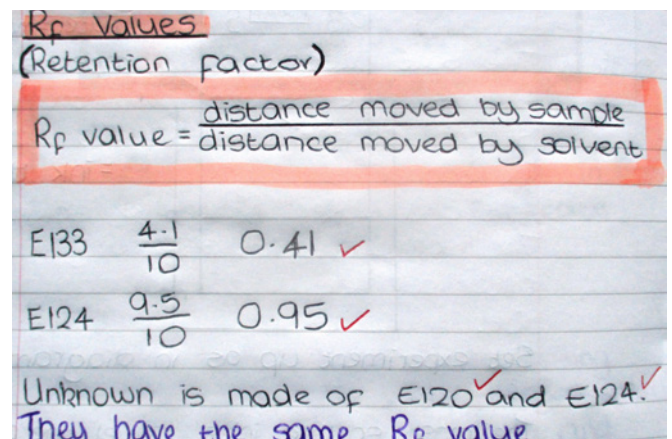 Rf Values
(Retention factor)
Rf value = distance moved by sample
distance moved by solvent
E133 4.1 0.41 ✓
10
E124 9.5 0.95 ✓
10
Unknown is made of E120 ✓ and E124. ✓
They have the same Rf value